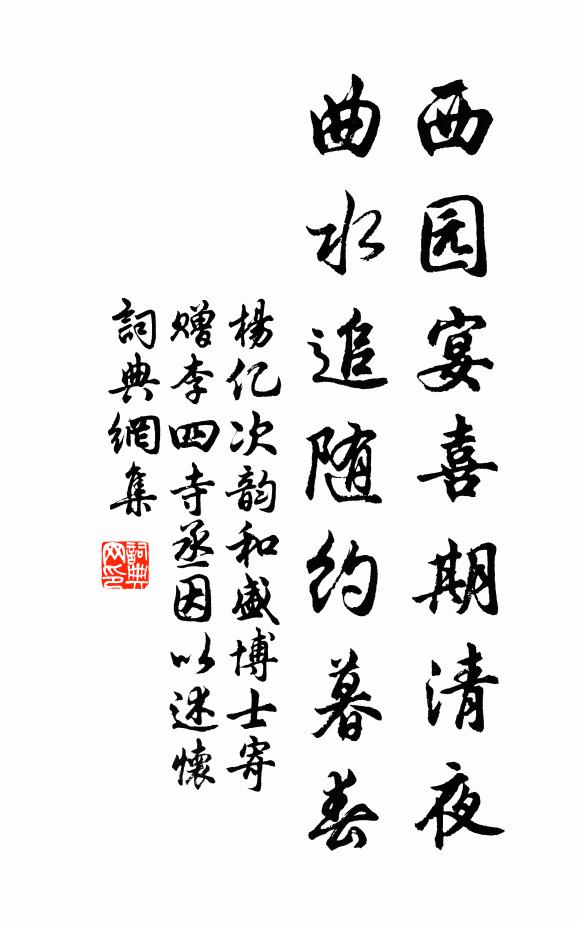 西园宴喜期清夜
曲水追随约暮春
楊亿次韵和盛博士寄
赠李四寺丞因以述懷
詞典網集
詞典网印